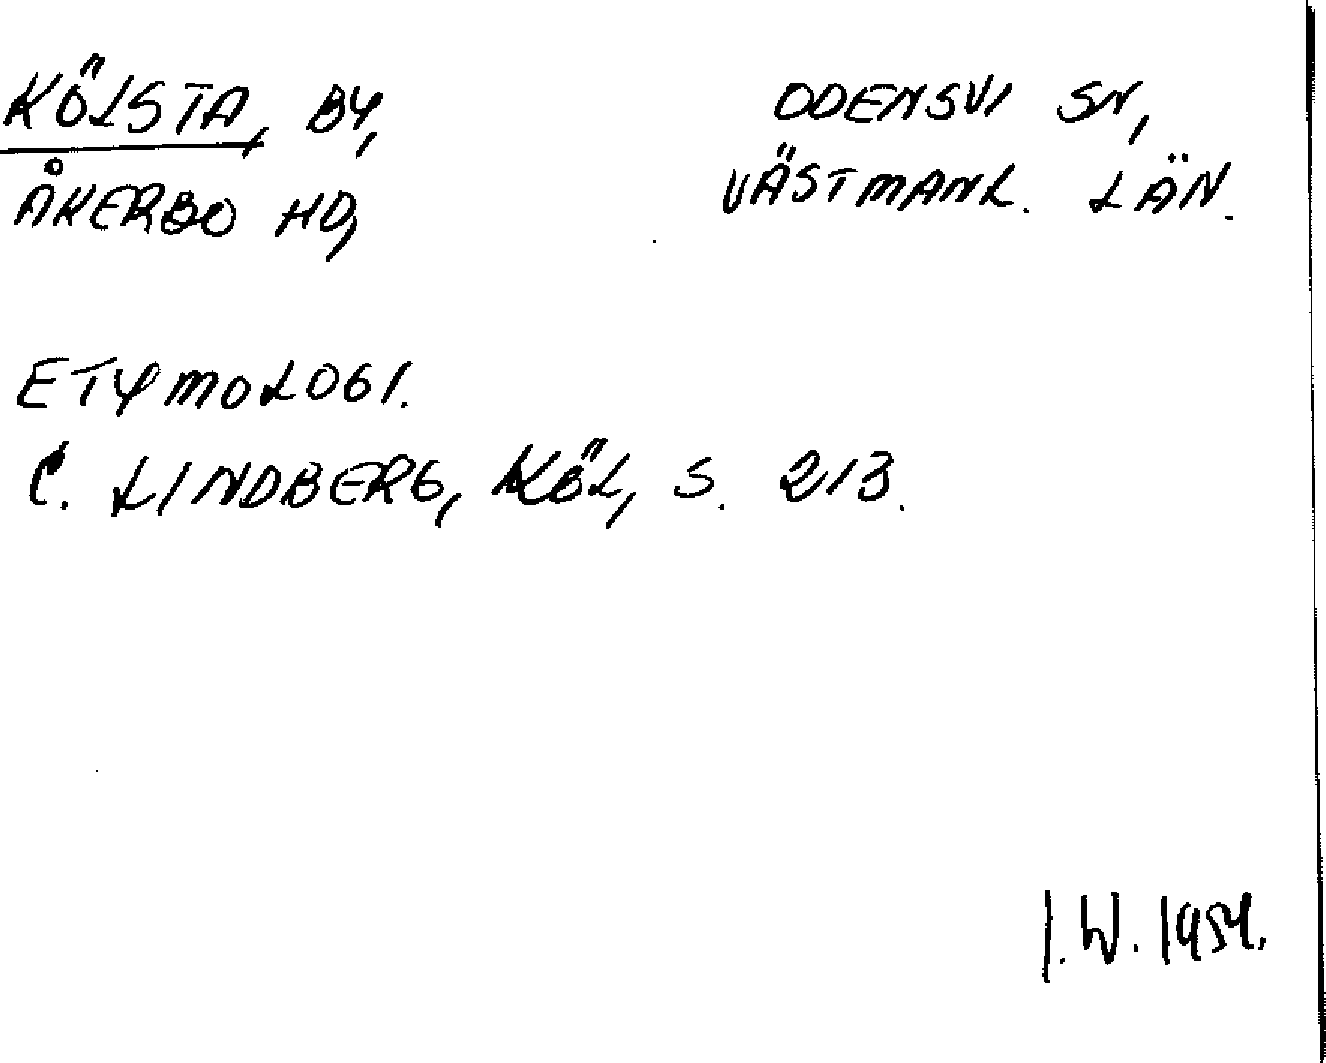 KÖLSTA, BY, ODENSVI SN,
ÅKERBO HD, VÄSTMANL. LÄN.
ETYMOLOGI.
C. LINDBERG, KÖL, S. 213.
I.W. 1954.